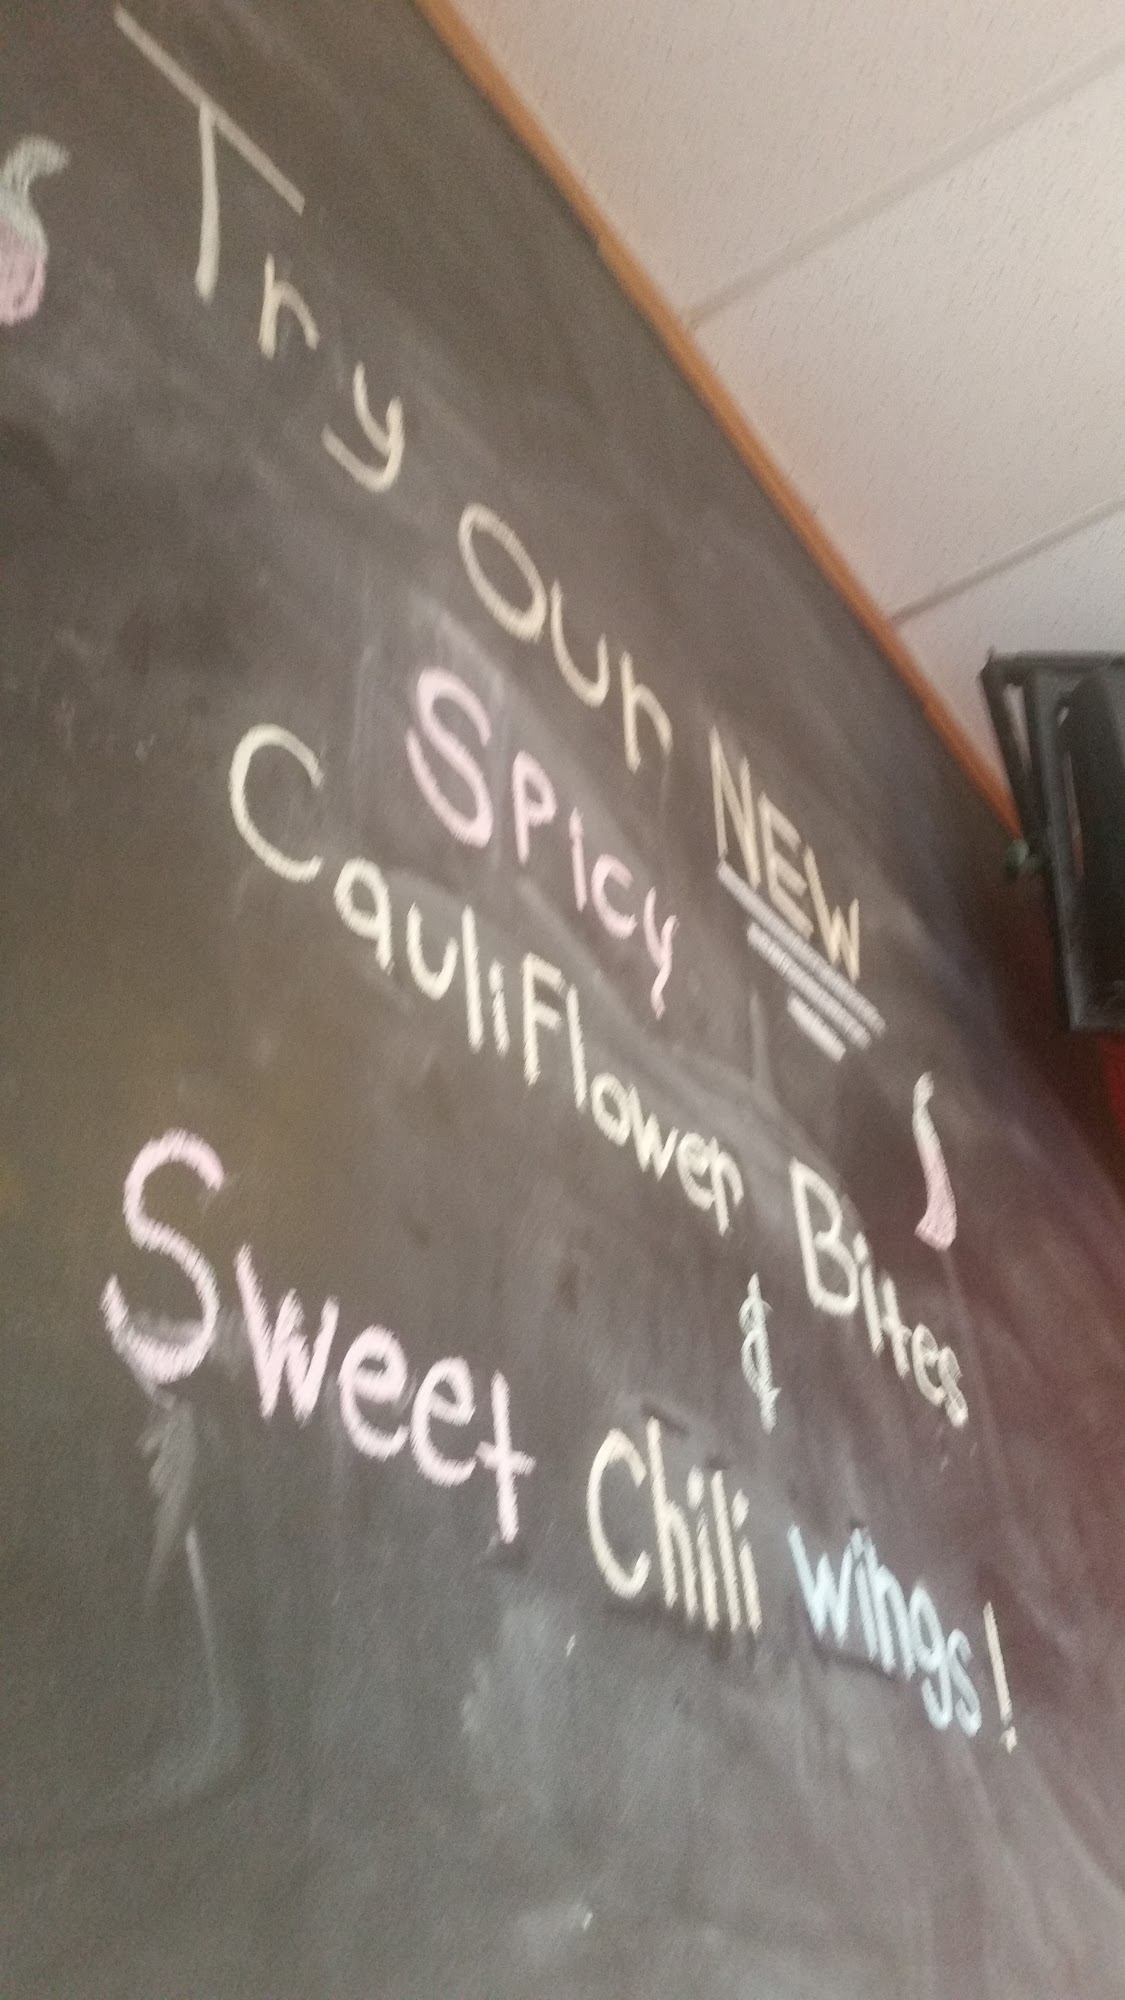 Try Our NEW
Spicy
Cauliflower Bites
&
Sweet Chili wings!